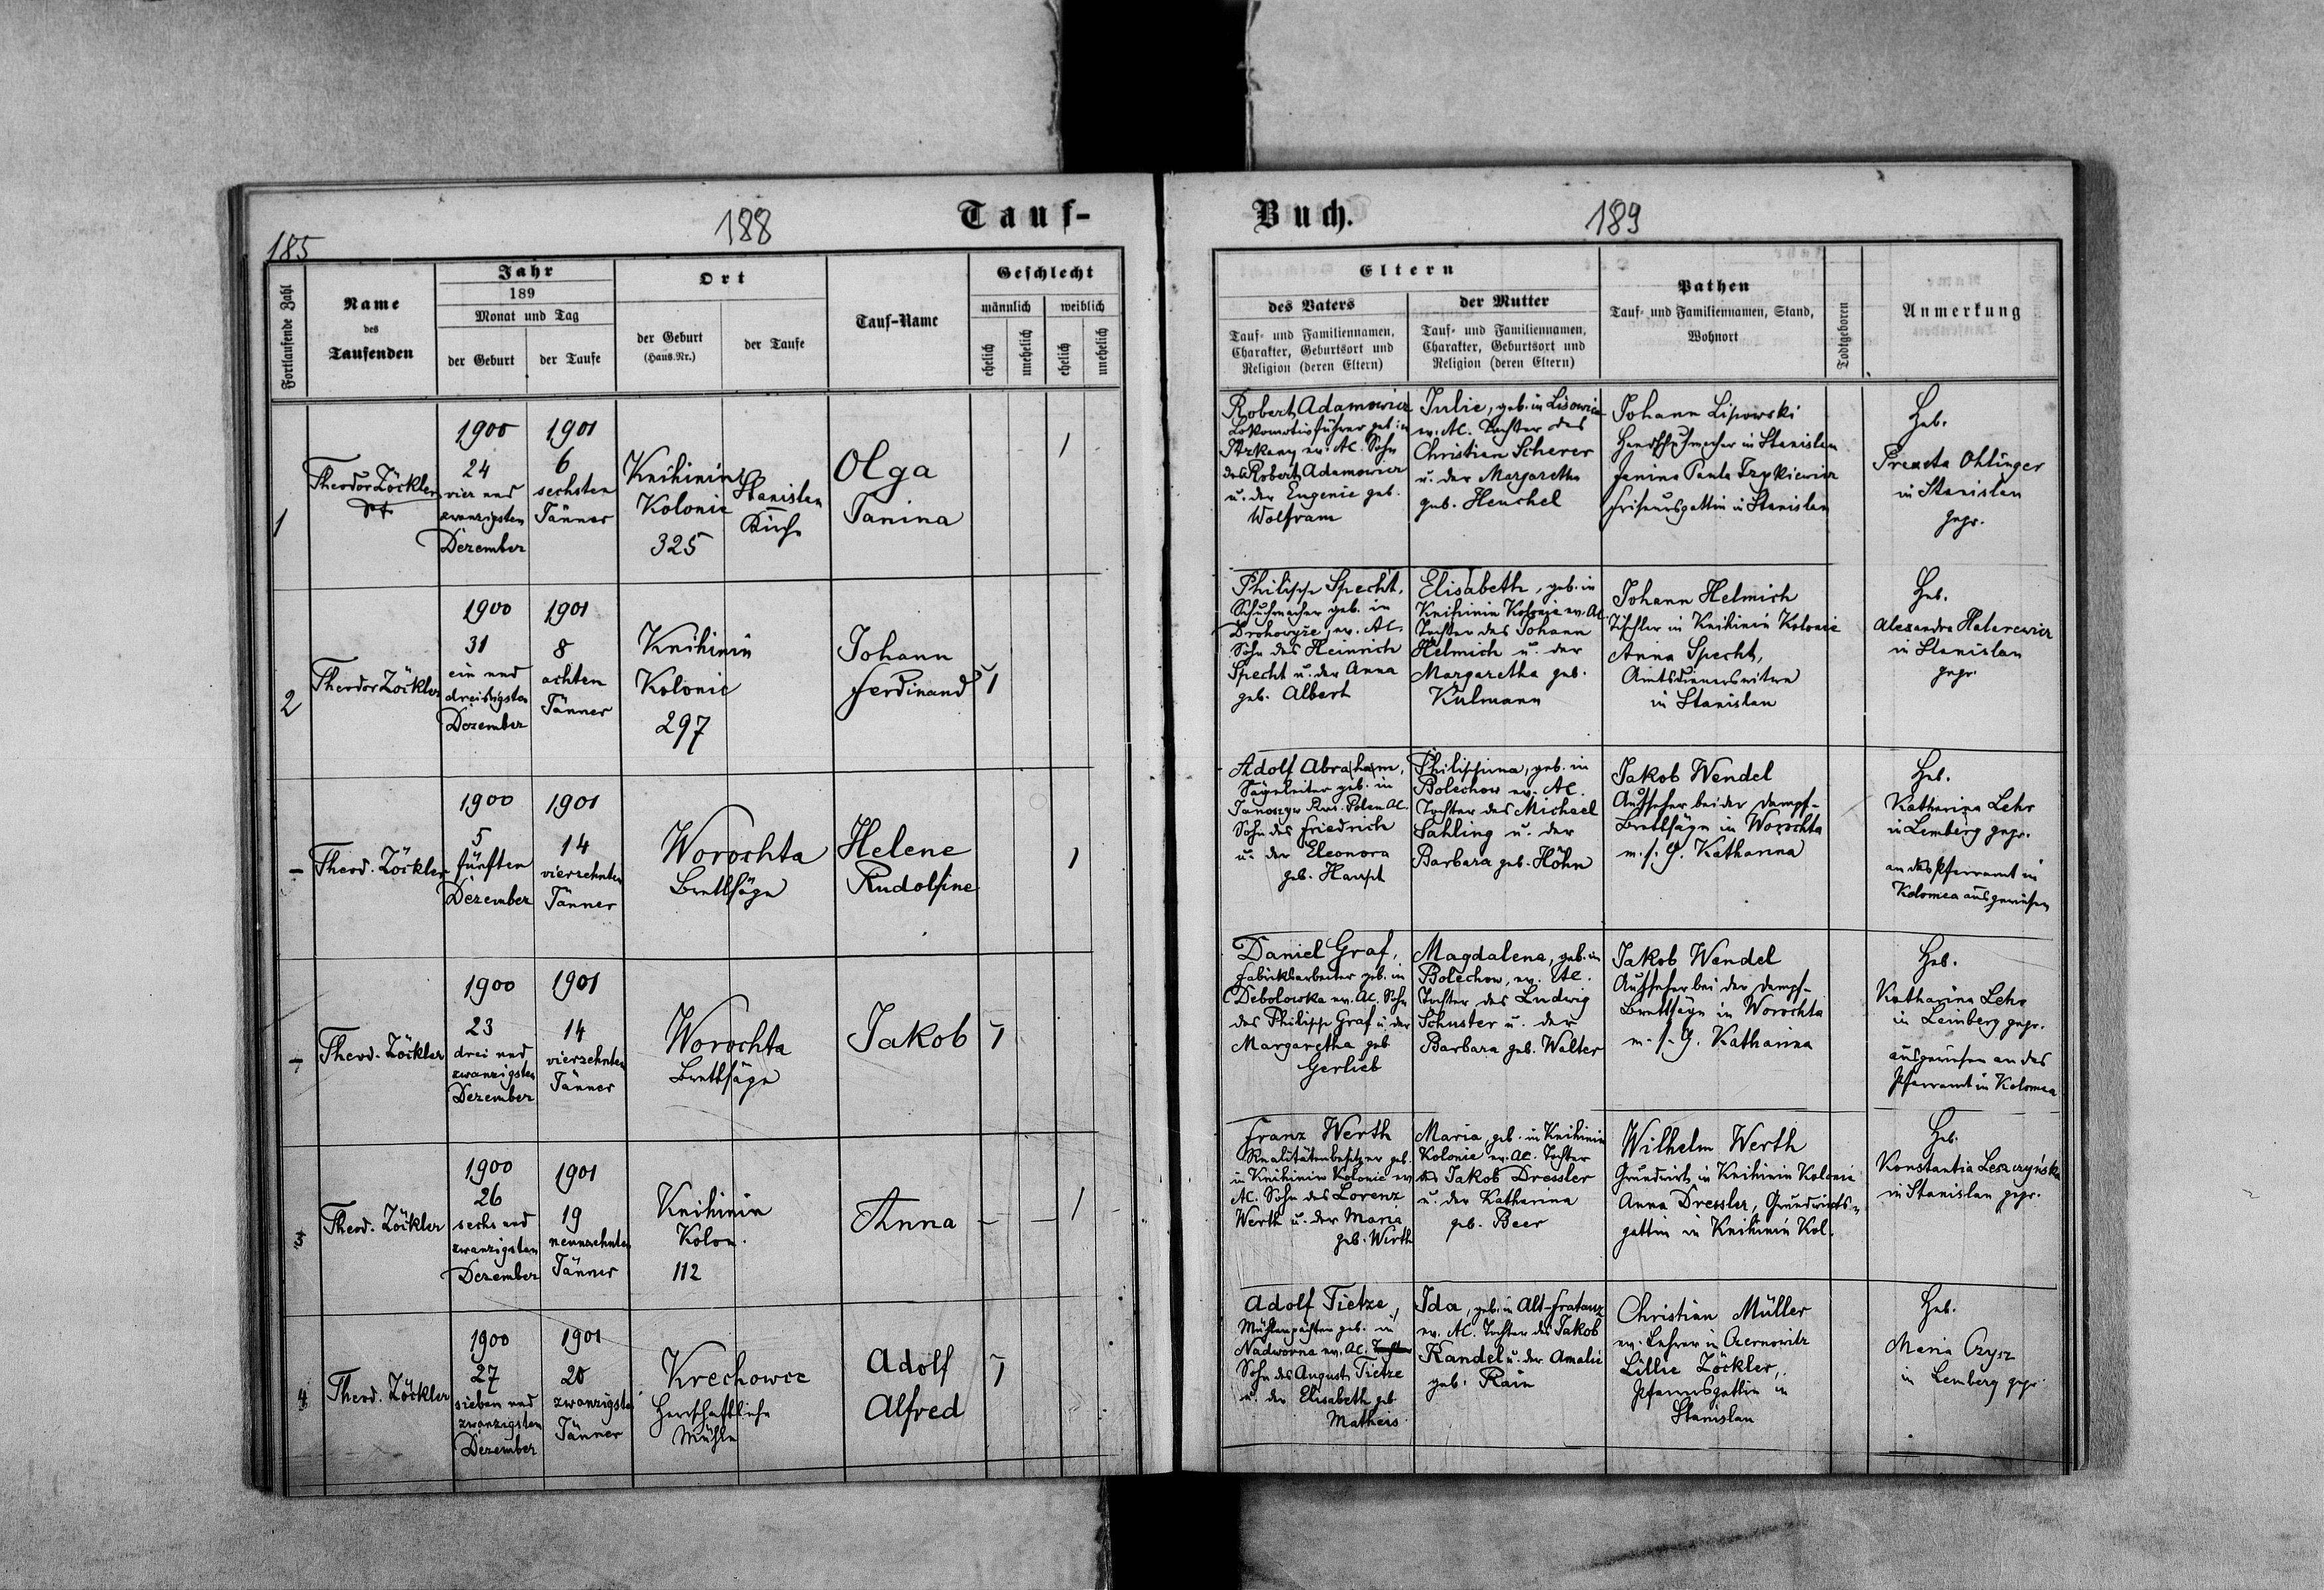 185
188
Tauf-
Fortlaufende Zahl
Name
des
Taufenden
Jahr
189
Monat und Tag
der Geburt
der Taufe
Ort
der Geburt
(Haus-Nr.)
der Taufe
Tauf-Name
Geschlecht
männlich
weiblich
ehelich
unehelich
ehelich
unehelich
1
Theodor Zöckler
1900
24
vier und
zwanzigsten
Dezember
1901
6
sechsten
Jänner
Knihinin
Kolonie
325
Stanislau
Kirche
Olga
Janina
1
2
Theodor Zöckler
1900
31
ein und
dreissigsten
Dezember
1901
8
achten
Jänner
Knihinin
Kolonie
297
Johann
Ferdinand
1
-
Theod. Zöckler
1900
5
fünften
Dezember
1901
14
vierzehnten
Jänner
Worochta
Brettsäge
Helene
Rudolfine
1
-
Theod. Zöckler
1900
23
drei und
zwanzigsten
Dezember
1901
14
vierzehnten
Jänner
Worochta
Brettsäge
Jakob
1
3
Theod. Zöckler
1900
26
sechs und
zwanzigsten
Dezember
1901
19
neunzehnten
Jänner
Knihinin
Kolon.
112
Anna
- - 1
4
Theod. Zöckler
1900
27
sieben und
zwanzigsten
Dezember
1901
20
zwanzigsten
Jänner
Krechowce
Herrschaftliche
Mühle
Adolf
Alfred
1
Buch.
189
Eltern
des Vaters
Tauf- und Familiennamen,
Charakter, Geburtsort und
Religion (deren Eltern)
der Mutter
Tauf- und Familiennamen,
Charakter, Geburtsort und
Religion (deren Eltern)
Pathen
Tauf- und Familiennamen, Stand,
Wohnort
Todtgeboren
Anmerkung
Robert Adamowicz
Lokomotivführer geb. in
ev. AC. Sohn
des Robert Adamowicz
u. der Eugenie geb.
Wolfram
Julie, geb. in Lisowice
ev. AC. Tochter des
Christian Scherer
u. der Margaretha
geb. Henchel
Johann Lipowski
Handschuhmacher in Stanislau
Janina Paula
Friseursgattin in Stanislau
Heb.
Ohlinger
in Stanislau
gepr.
Philipp Specht,
Schuhmacher geb. in
Drohowyże, ev. AC.
Sohn des Heinrich
Specht u. der Anna
geb. Albert
Elisabeth, geb. in
Knihinin Kolonie ev. AC.
Tochter des Johann
Helmich u. der
Margaretha geb.
Kulmann
Johann Helmich
Tischler in Knihinin Kolonie
Anna Specht,
Amtsdienerswitwe
in Stanislau
Heb.
Alexandra Hatarewicz
in Stanislau
gepr.
Adolf Abraham,
Sägeleiter geb. in
Russ. Polen AC.
Sohn des Friedrich
u. der Eleonora
geb. Haupt
Philippina, geb. in
Bolechow ev. AC.
Tochter des Michael
Sahling u. der
Barbara geb. Höhn
Jakob Wendel
Aufseher bei der Dampf-
Brettsäge in Worochta
m. s. G. Katharina
Heb.
Katharina Lehr
in Lemberg gepr.
an das Pfarramt in
Kolomea ausgewiesen
Daniel Graf,
Fabriksarbeiter geb. in
Debolowka ev. AC. Sohn
des Philipp Graf u. der
Margaretha geb.
Gerlieb
Magdalena, geb. in
Bolechow, ev. AC.
Tochter des Ludwig
Schuster u. der
Barbara geb. Walter
Jakob Wendel
Aufseher bei der Dampf-
Brettsäge in Worochta
m. s. G. Katharina
Heb.
Katharina Lehr
in Lemberg gepr.
ausgewiesen an das
Pfarramt in Kolomea
Franz Werth
Realitätenbesitzer geb.
in Knihinin Kolonie ev.
AC. Sohn des Lorenz
Werth u. der Maria
geb. Wirth
Maria, geb. in Knihinin
Kolonie ev. AC. Tochter
des Jakob Dressler
u. der Katharina
geb. Beer
Wilhelm Werth
Grundwirt in Knihinin Kolonie
Anna Dressler, Grundwirts-
gattin in Knihinin Kol.
Heb.
Konstantia Leszczyńska
in Stanislau gepr.
Adolf Tietze,
Mühlenpächter geb. in
Nadworna ev. AC. Tochter
Sohn des August Tietze
u. der Elisabeth geb.
Matheis
Ida, geb. in Alt-Fratautz
ev. AC. Tochter des Jakob
Kandel u. der Amalie
geb. Rain
Christian Müller
ev. Lehrer in Czernowitz
Lillie Zöckler,
Pfarrersgattin in
Stanislau
Heb.
Maria Czysz
in Lemberg gepr.